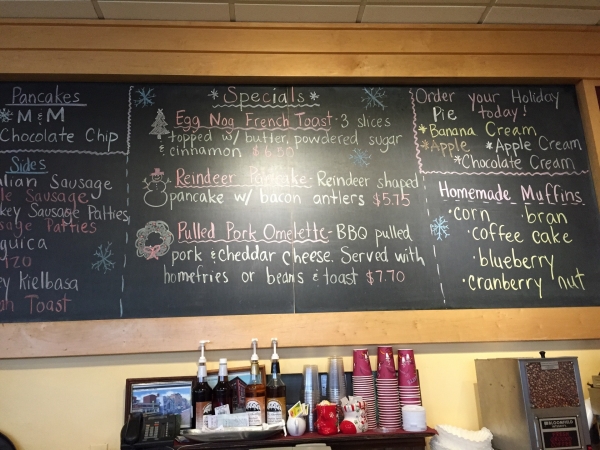 Pancakes
*M & M
Chocolate Chip
Sides
Sausage
Sausage
Sausage Patties
Sausage Patties
Kielbasa
Toast
*Specials*
Egg Nog French Toast - 3 slices
topped w/ butter, powdered sugar
& cinnamon $6.50
Reindeer Pancake - Reindeer shaped
pancake w/ bacon antlers $5.75
Pulled Pork Omelette - BBQ pulled
pork & cheddar cheese. Served with
homefries or beans & toast $7.70
Order your Holiday
Pie today!
*Banana Cream
*Apple *Apple Cream
*Chocolate Cream
Homemade Muffins
·corn ·bran
·coffee cake
·blueberry
·cranberry nut
BLOOMFIELD